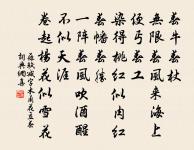 春牛春杖
無限春風來海上
便丐春工
染得桃紅似肉紅
春幡春勝
一陣春風吹酒醒
不似天涯
卷起楊花似雪花
蘇軾減字木蘭花立春
詞典網集